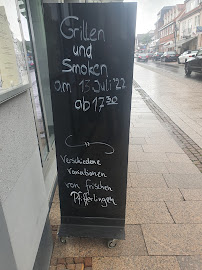 Grillen
und
Smoken
am 15 Juli '22
ab 17³⁰
Verschiedene
Variationen
von frischen
Pfifferlingen